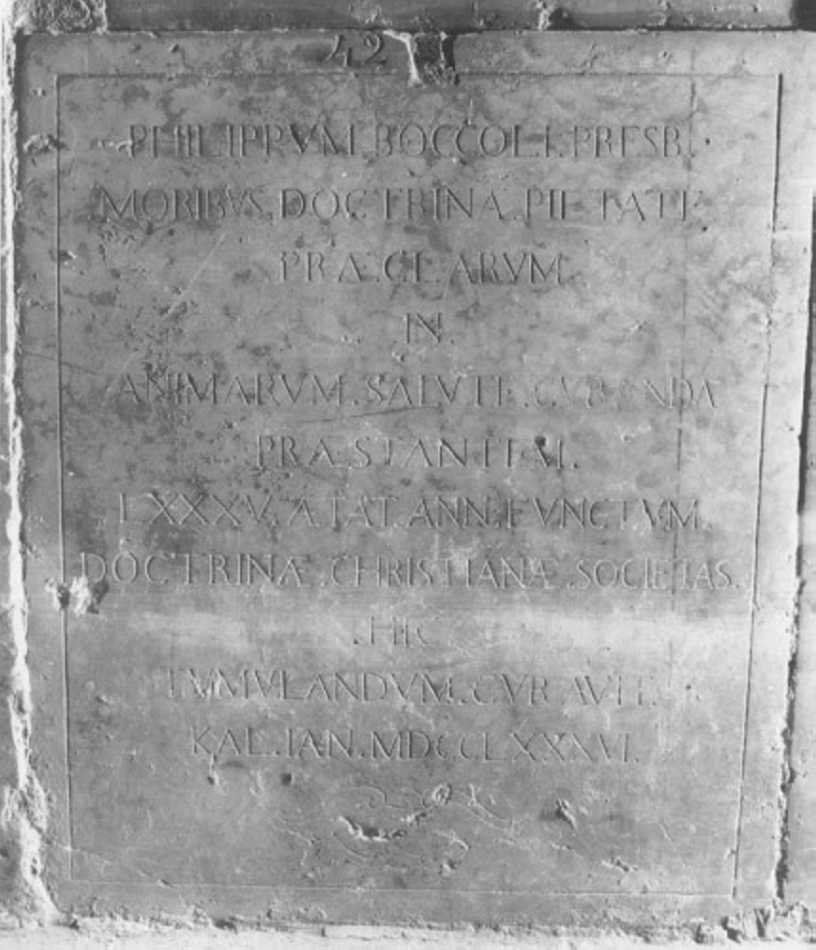 42
PHILIPPVM.BOCCOLI.PRESB.
MORIBVS.DOCTRINA.PIETATE
PRÆCLARVM
IN.
ANIMARVM.SALVTE.CVRANDA
PRÆSTANTEM.
LXXXV.ÆTAT.ANN.FVNCTVM.
DOCTRINÆ.CHRISTIANÆ.SOCIETAS.
.HIC
TVMVLANDVM.CVRAVIT.
KAL.IAN.MDCCLXXXVI.